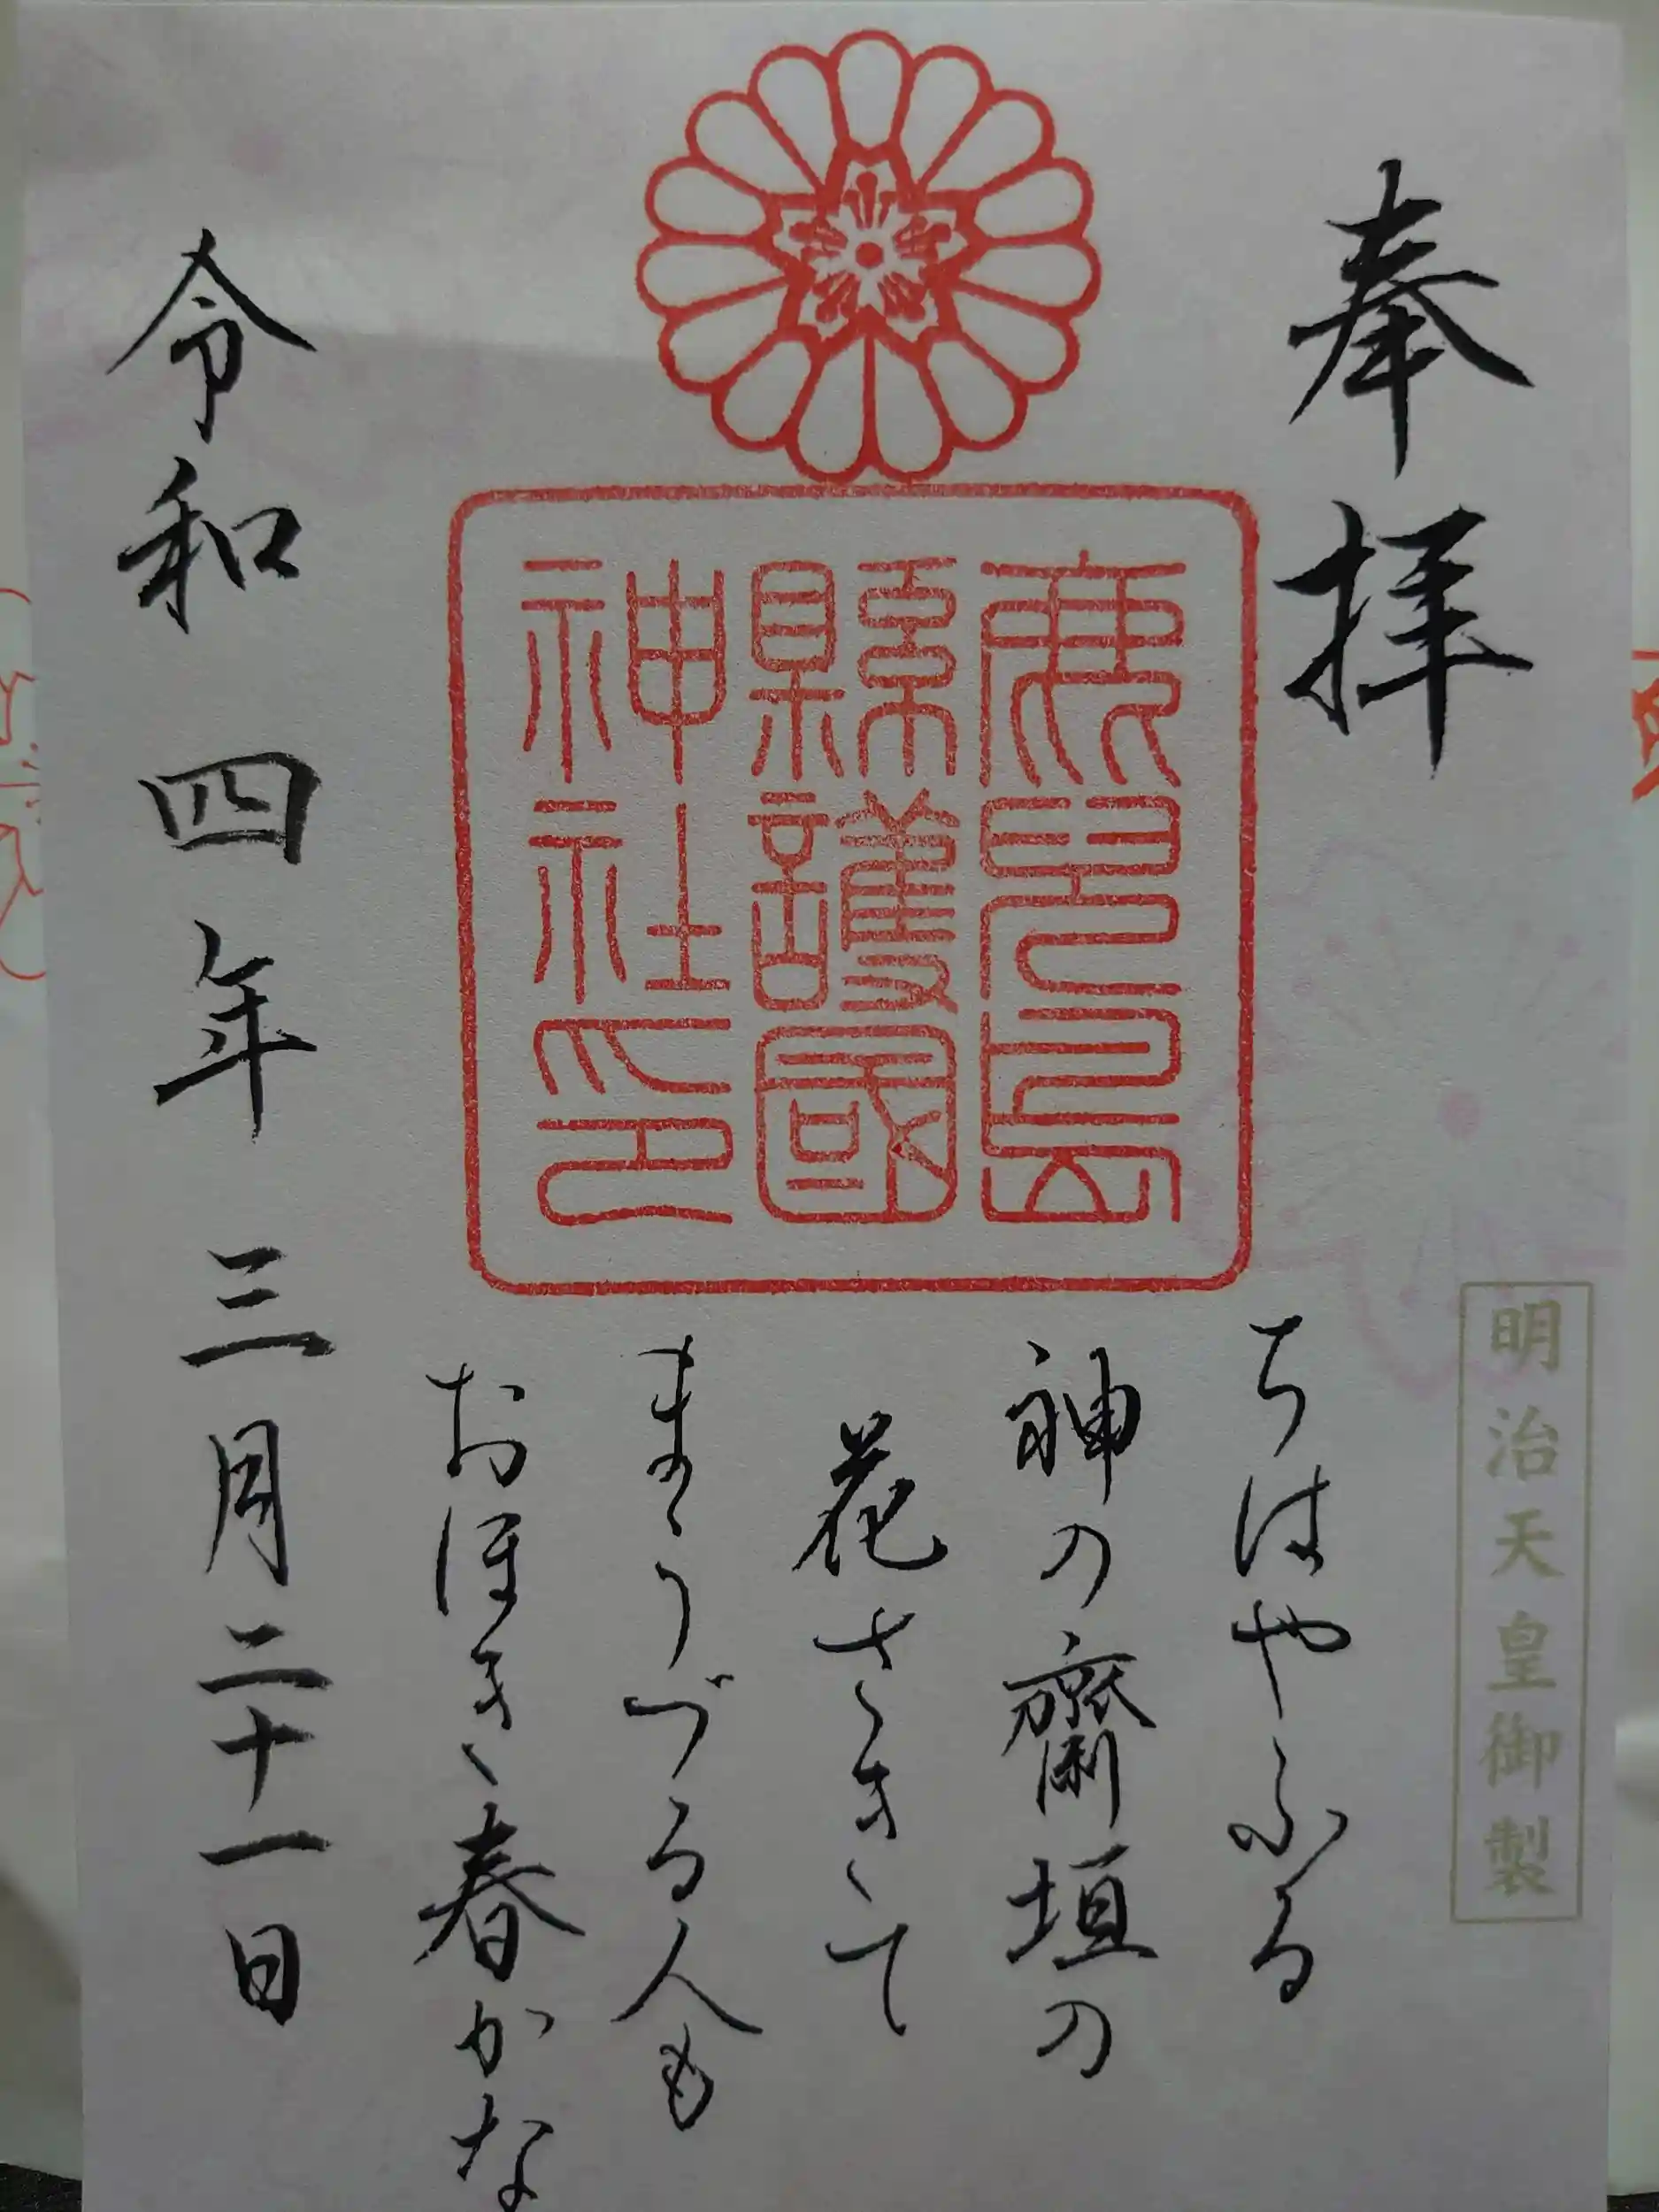 奉拝
明治天皇御製
鹿兒島
縣護國
神社印
ちはやふる
神の齋垣の
花さきて
まうづる人も
おほき春かな
令和四年三月二十一日